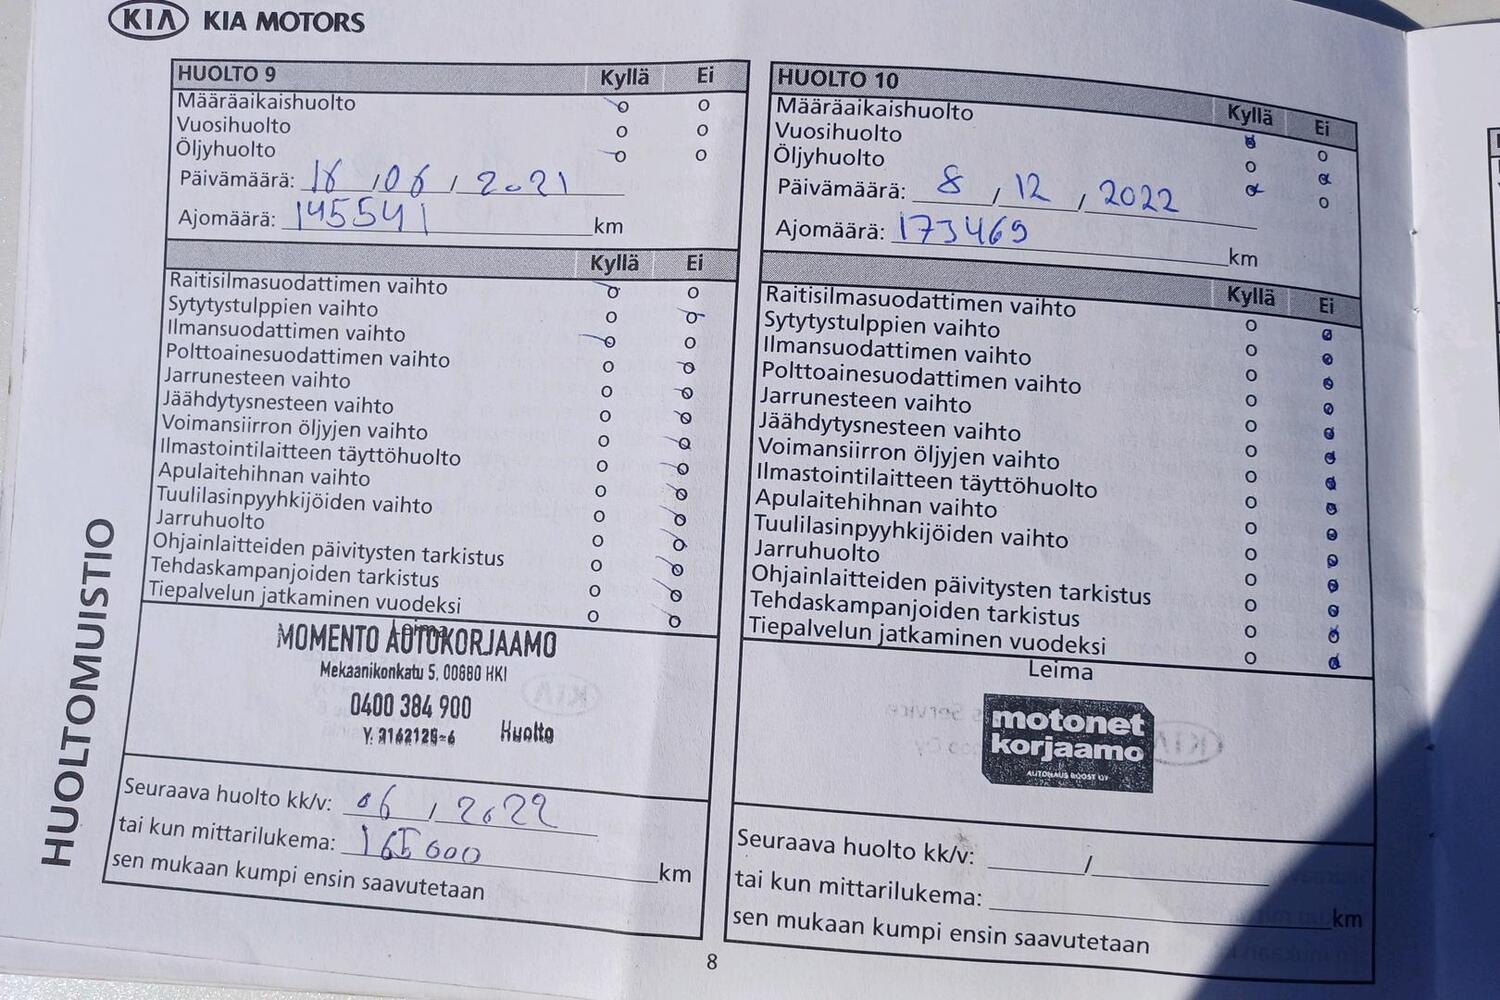 KIA KIA MOTORS
HUOLTO 9 Kyllä Ei
Määräaikaishuolto o o
Vuosihuolto o o
Öljyhuolto o o
Päivämäärä: 16 / 06 / 2021
Ajomäärä: 145541 km
Kyllä Ei
Raitisilmasuodattimen vaihto o o
Sytytystulppien vaihto o o
Ilmansuodattimen vaihto o o
Polttoainesuodattimen vaihto o o
Jarrunesteen vaihto o o
Jäähdytysnesteen vaihto o o
Voimansiirron öljyjen vaihto o o
Ilmastointilaitteen täyttöhuolto o o
Apulaitehihnan vaihto o o
Tuulilasinpyyhkijöiden vaihto o o
Jarruhuolto o o
Ohjainlaitteiden päivitysten tarkistus o o
Tehdaskampanjoiden tarkistus o o
Tiepalvelun jatkaminen vuodeksi o o
Leima
MOMENTO AUTOKORJAAMO
Mekaanikonkatu 5, 00880 HKI
0400 384 900
Y. 2162129-6 Huolto
Seuraava huolto kk/v: 06 / 2022
tai kun mittarilukema: 165000 km
sen mukaan kumpi ensin saavutetaan
HUOLTO 10 Kyllä Ei
Määräaikaishuolto o o
Vuosihuolto o o
Öljyhuolto o o
Päivämäärä: 8 / 12 / 2022
Ajomäärä: 173469 km
Kyllä Ei
Raitisilmasuodattimen vaihto o o
Sytytystulppien vaihto o o
Ilmansuodattimen vaihto o o
Polttoainesuodattimen vaihto o o
Jarrunesteen vaihto o o
Jäähdytysnesteen vaihto o o
Voimansiirron öljyjen vaihto o o
Ilmastointilaitteen täyttöhuolto o o
Apulaitehihnan vaihto o o
Tuulilasinpyyhkijöiden vaihto o o
Jarruhuolto o o
Ohjainlaitteiden päivitysten tarkistus o o
Tehdaskampanjoiden tarkistus o o
Tiepalvelun jatkaminen vuodeksi o o
Leima
motonet
korjaamo
AUTOHAUS BOOST OY
Seuraava huolto kk/v: /
tai kun mittarilukema: km
sen mukaan kumpi ensin saavutetaan
HUOLTOMUISTIO
8